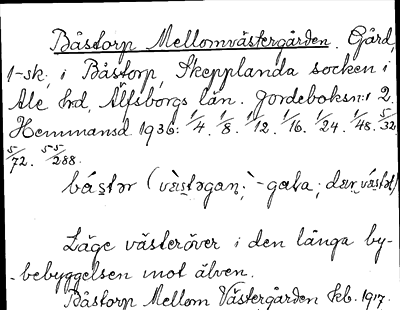 Båstorp Mellomvästergården. Gård,
1-sk, i Båstorp, Skepplanda socken i
Ale hd, Älfsborgs län. Jordeboksn:r 2.
Hemmansd. 1936: 1/4. 1/8. 1/12. 1/16. 1/24. 1/48. 5/32.
5/72. 55/288.
Läge västeröver i den långa by-
-bebyggelsen mot älven.
Båstorp Mellom Västergården Fkb. 1917.